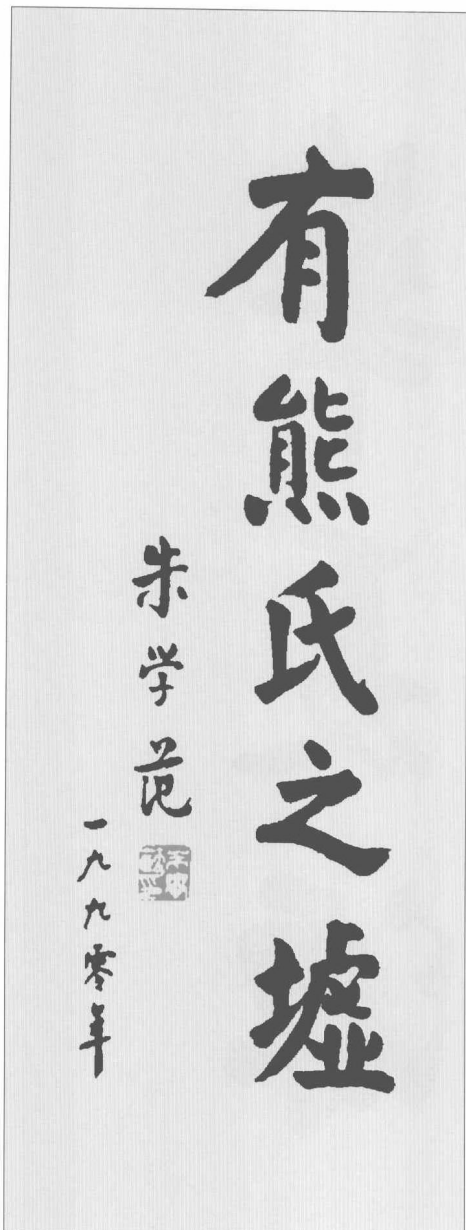 有熊氏之墟
朱学范
一九九零年